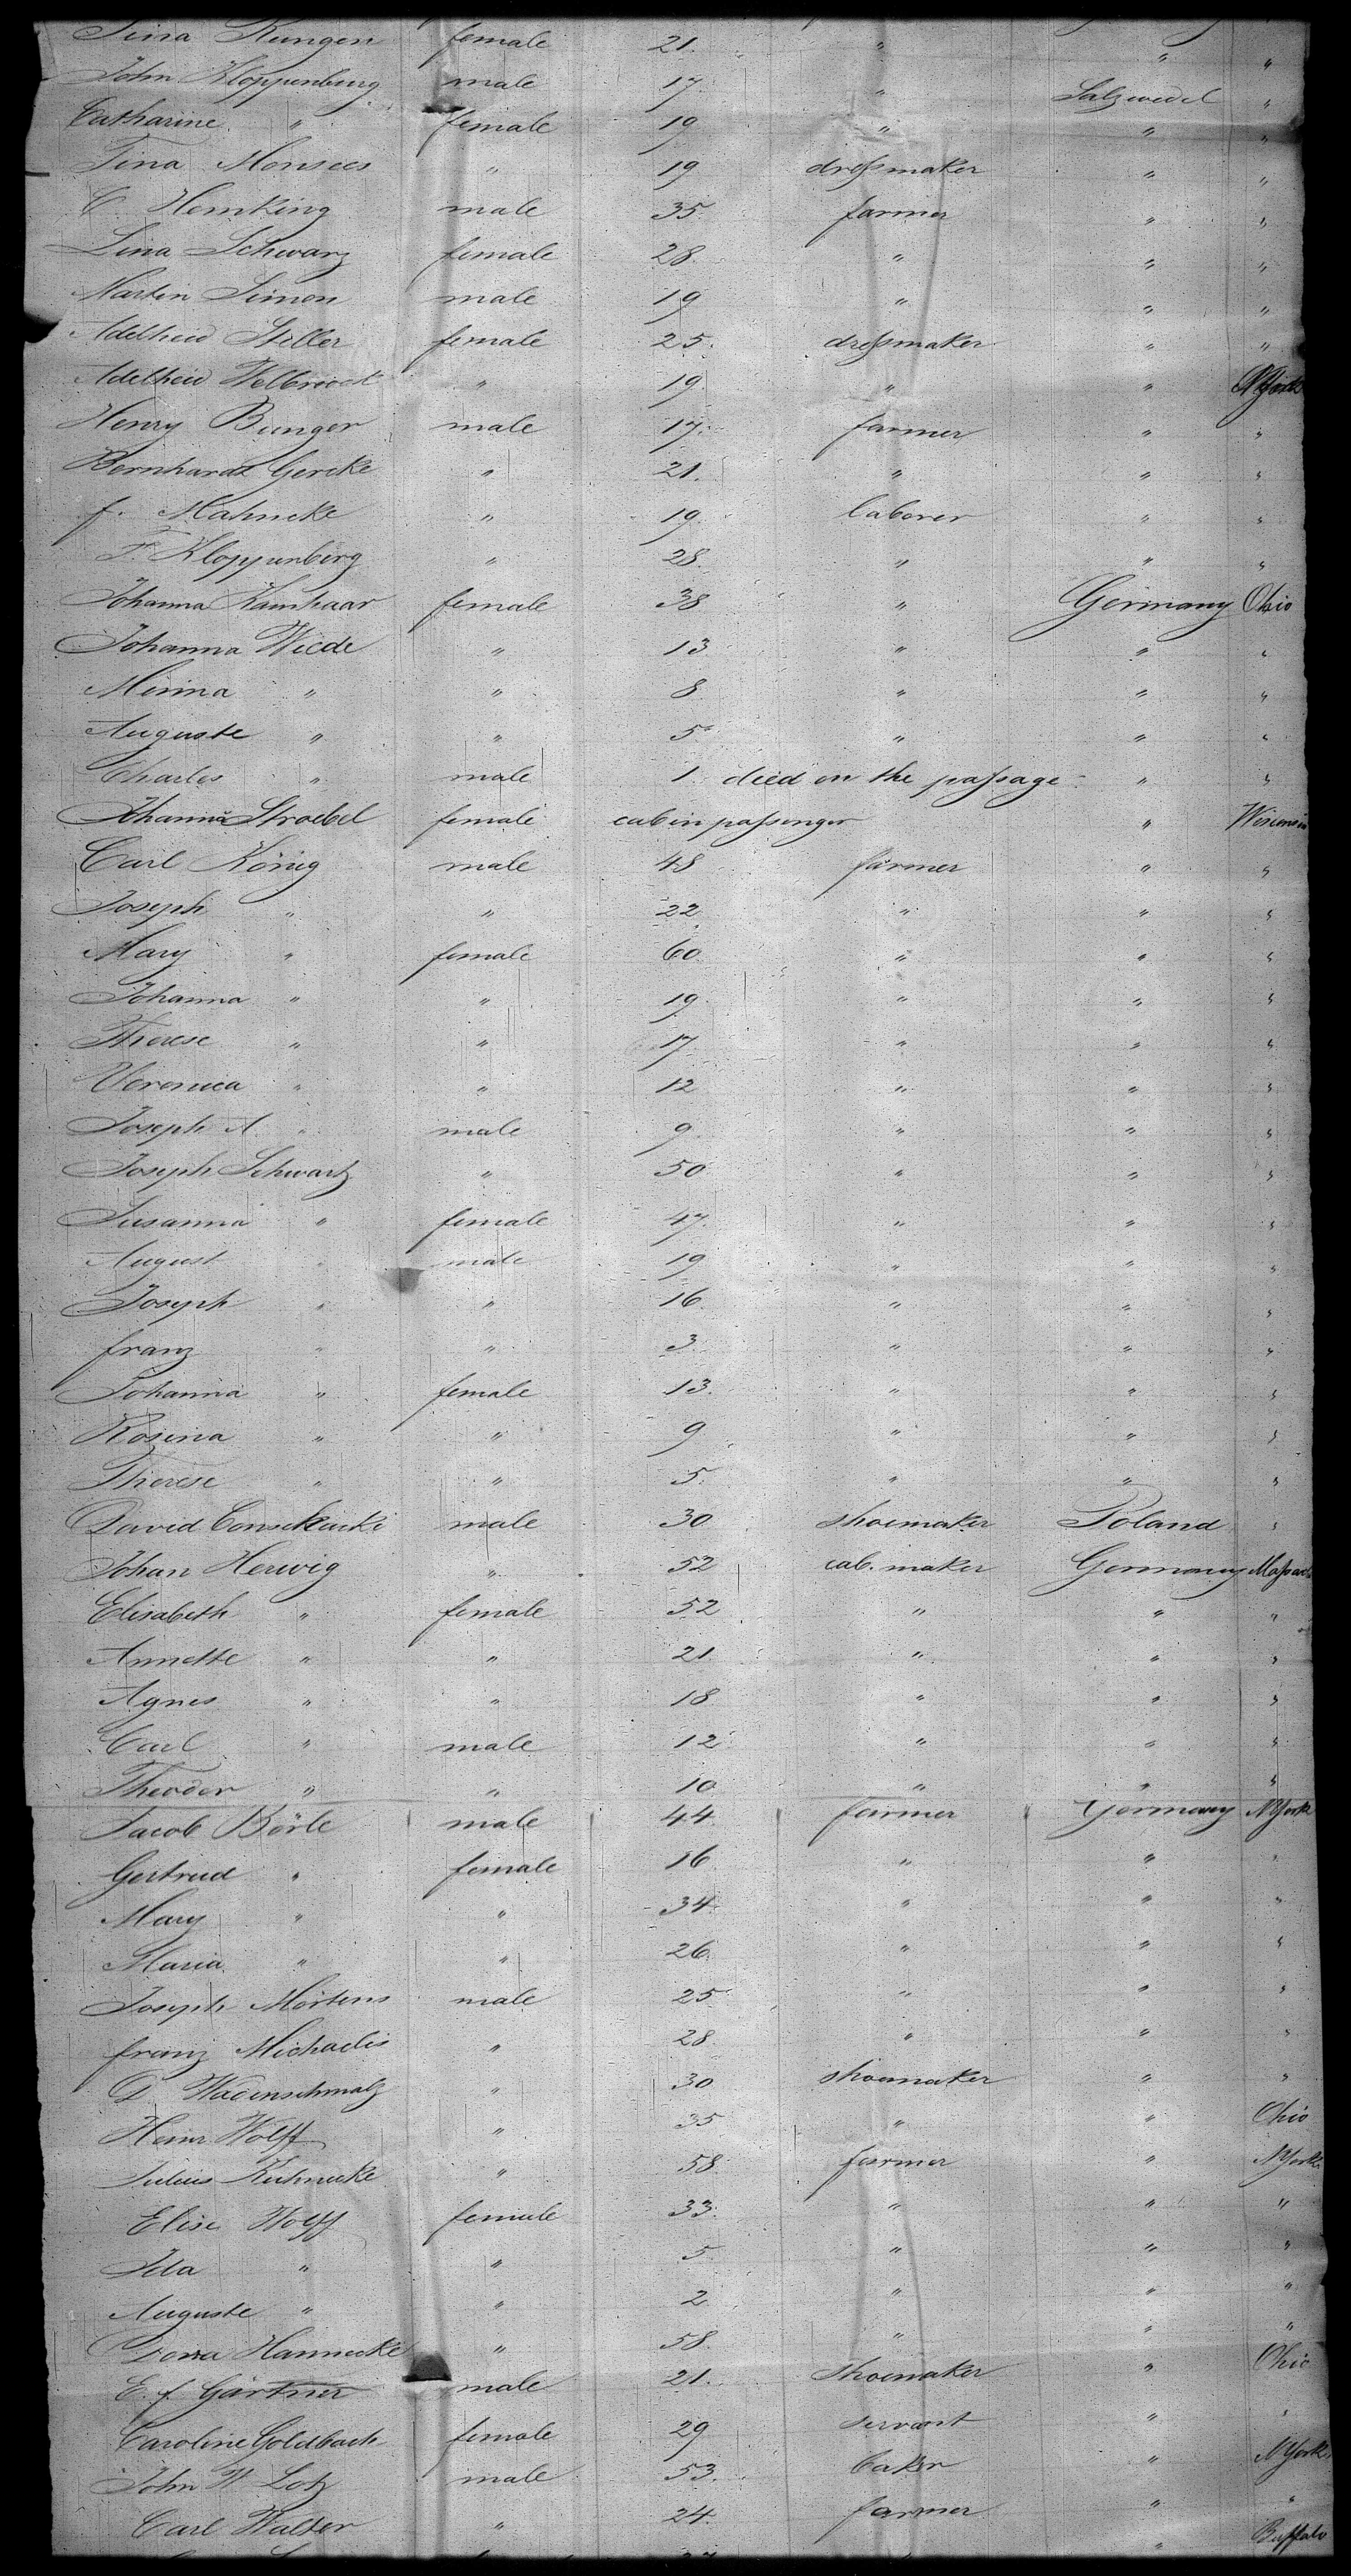 Tina Rungen female 21. " " "
John Kloppenburg male 17 " Salzwedel "
Catharine " female 19 " " "
Tina Monsees " 19 dressmaker " "
C. Hemking male 35 farmer " "
Lina Schwarz female 28 " " "
Martin Simon male 19 " " "
Adelheid Stiller female 25. dressmaker " "
Adelheid Welbrock " 19. " " NYork
Henry Bunger male 17. farmer " "
Bernhardt Gercke " 21. " " "
f. Mahncke " 19. laborer " "
F. Kloppenberg " 28. " " "
Johanna Kamhaar female 38 " Germany Ohio
Johanna Wiede " 13 " " "
Minna " " 8 " " "
Auguste " " 5 " " "
Charles " male 1 died on the passage " "
Johanna Stroebel female cabin passenger " Wisconsin
Carl König male 48 farmer " "
Joseph " " 22 " " "
Mary " female 60 " " "
Johanna " " 19 " " "
Therese " " 17 " " "
Veronica " " 12 " " "
Joseph A. " male 9 " " "
Joseph Schwartz " 50 " " "
Susanna " female 47. " " "
August " male 19 " " "
Joseph " " 16 " " "
franz " " 3 " " "
Johanna " female 13. " " "
Rosina " " 9 " " "
Therese " " 5. " " "
David male 30 shoemaker Poland "
Johan Herwig " 52 cab. maker Germany
Elisabeth " female 52 " " "
Annette " " 21 " " "
Agnes " " 18 " " "
Carl " male 12 " " "
Theodor " " 10 " " "
Jacob Börle male 44 farmer Germany NYork
Gertrud " female 16 " " "
Mary " " 34 " " "
Maria " " 26 " " "
Joseph Mörtens male 25 " " "
franz Michaelis " 28 " " "
Wadenschmalz " 30 shoemaker " "
Heinr Wolff " 35 " " Ohio
Julius Kuhnecke " 58 farmer " NYork
Elise Wolff female 33. " " "
Ida " " 5 " " "
Auguste " " 2 " " "
Dora Hannecke " 58. " " "
E. f. Gärtner male 21. shoemaker " Ohio
Caroline Goldbach female 29 servant " "
John W Lotz male 53. baker " NYork
Carl Walter " 24. farmer " "
" Buffalo